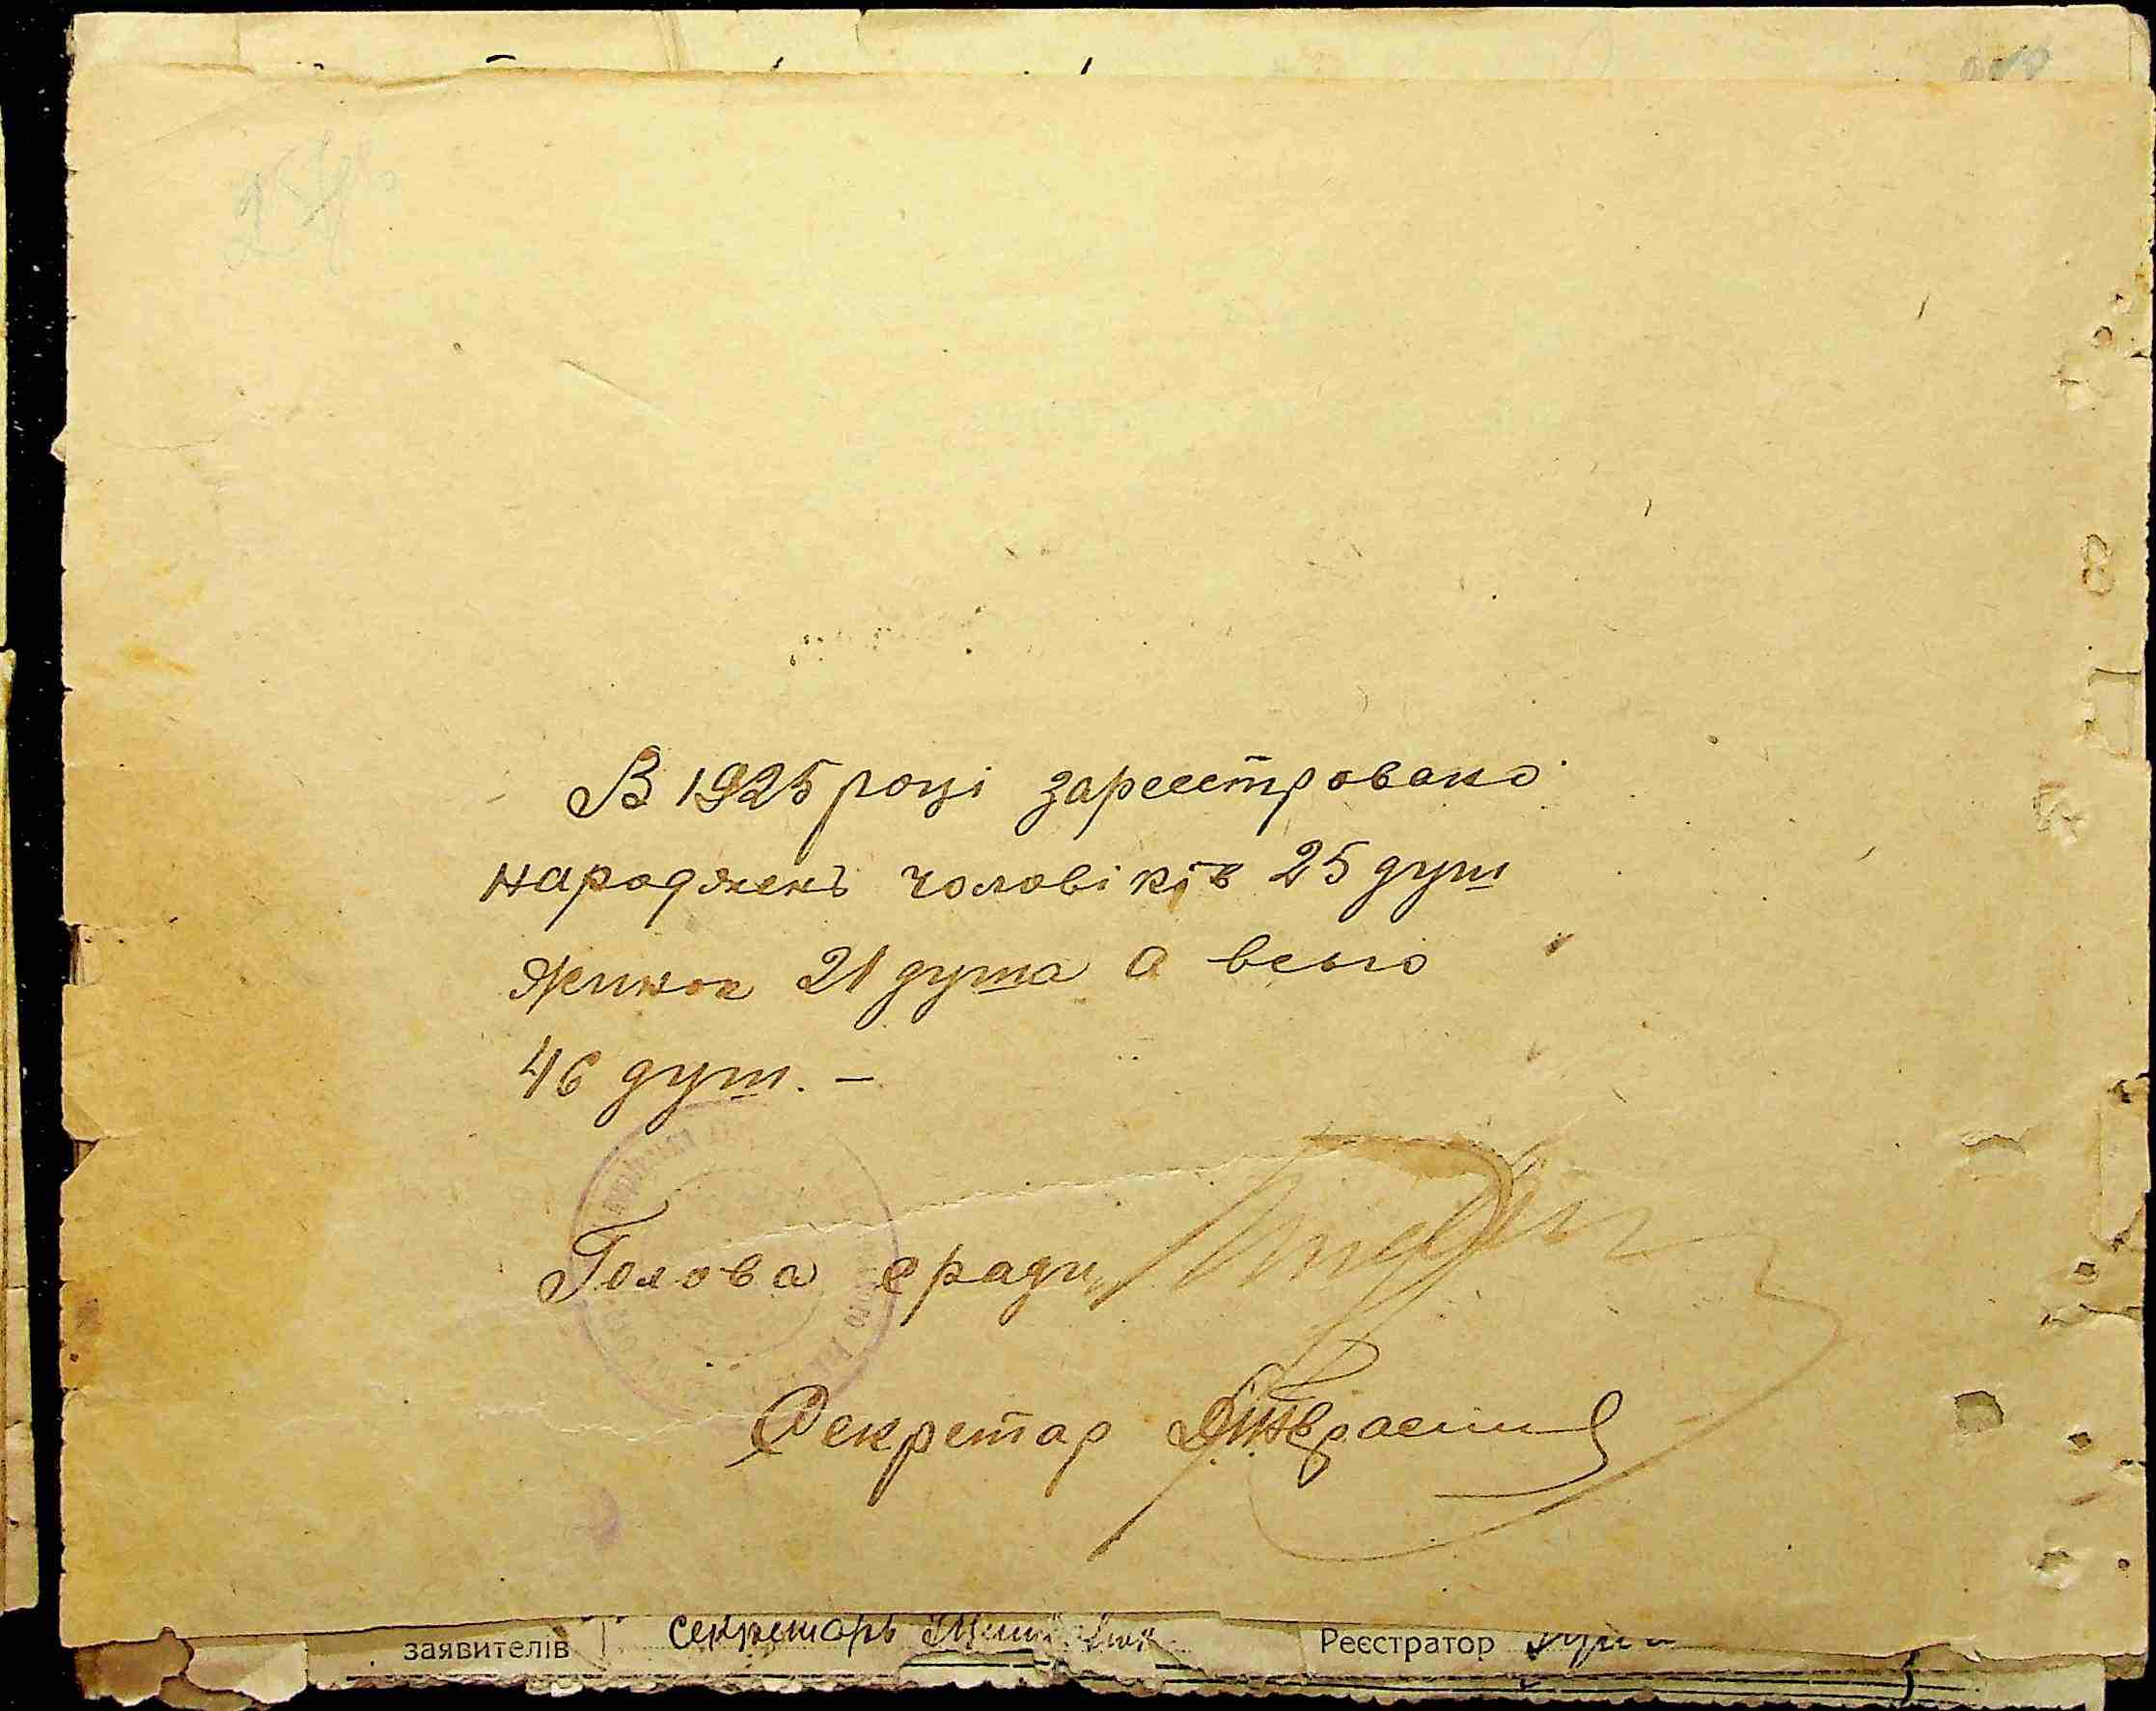 В 1925 році зареєстровано
народженъ чоловіків 25 душ
жинок 21 душа а всього
46 душ. —
Голова с ради
Секретар
заявителів Секретарь Реєстратор